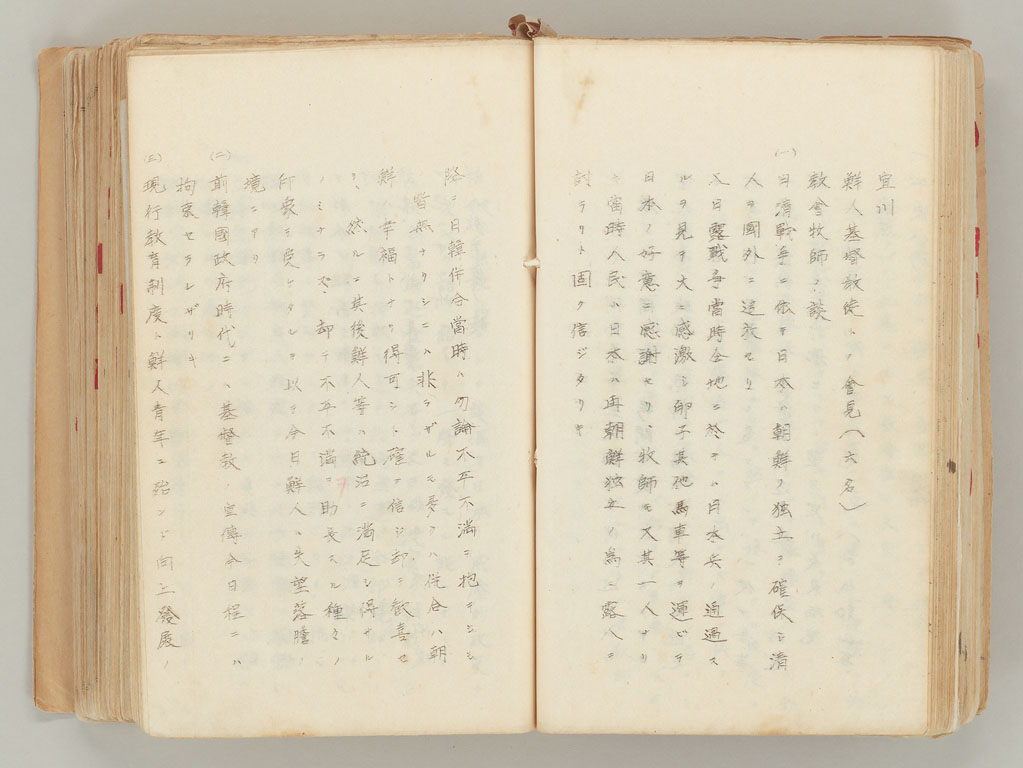 宣川
鮮人基督教徒トノ會見(六名)
教會牧師ノ談
(一)
日清戰爭ニ依テ日本ハ朝鮮ノ独立ヲ確保シ清
人ヲ國外ニ逐放セリ
日露戰爭當時全地ニ於テハ日本兵ノ通過ス
ルヲ見テ大ニ感激シ卵子其他馬車等ヲ運ビテ
日本ノ好意ニ感謝セリ、牧師モ又其一人ナリ
キ當時人民ハ日本ハ再朝鮮独立ノ為ニ露人ヲ
討ラリト固ク信ジタリキ
ニ日韓併合當時ハ勿論不平不滿ヲ抱キシシ
皆無ナリシニハ非ラザルモ多クハ併合ハ朝
鮮ノ幸福トナリ得可シト確ク信ジ却テ歓喜セ
然ルニ其後鮮人等ハ統治ニ滿足シ得ザル
ノミナラズ、却テ不平不滿ヲ助長スル種々ノ
ヲ受ケタレヲ以テ今日鮮人ハ失望落膽ノ
境ニアリ
(二)
前韓國政府時代ニハ基督教ノ宣傳今日程ニハ
拘束セラレザリキ
(三)
現行教育制度ハ鮮人青年ニ殆ンド向上發展ノ